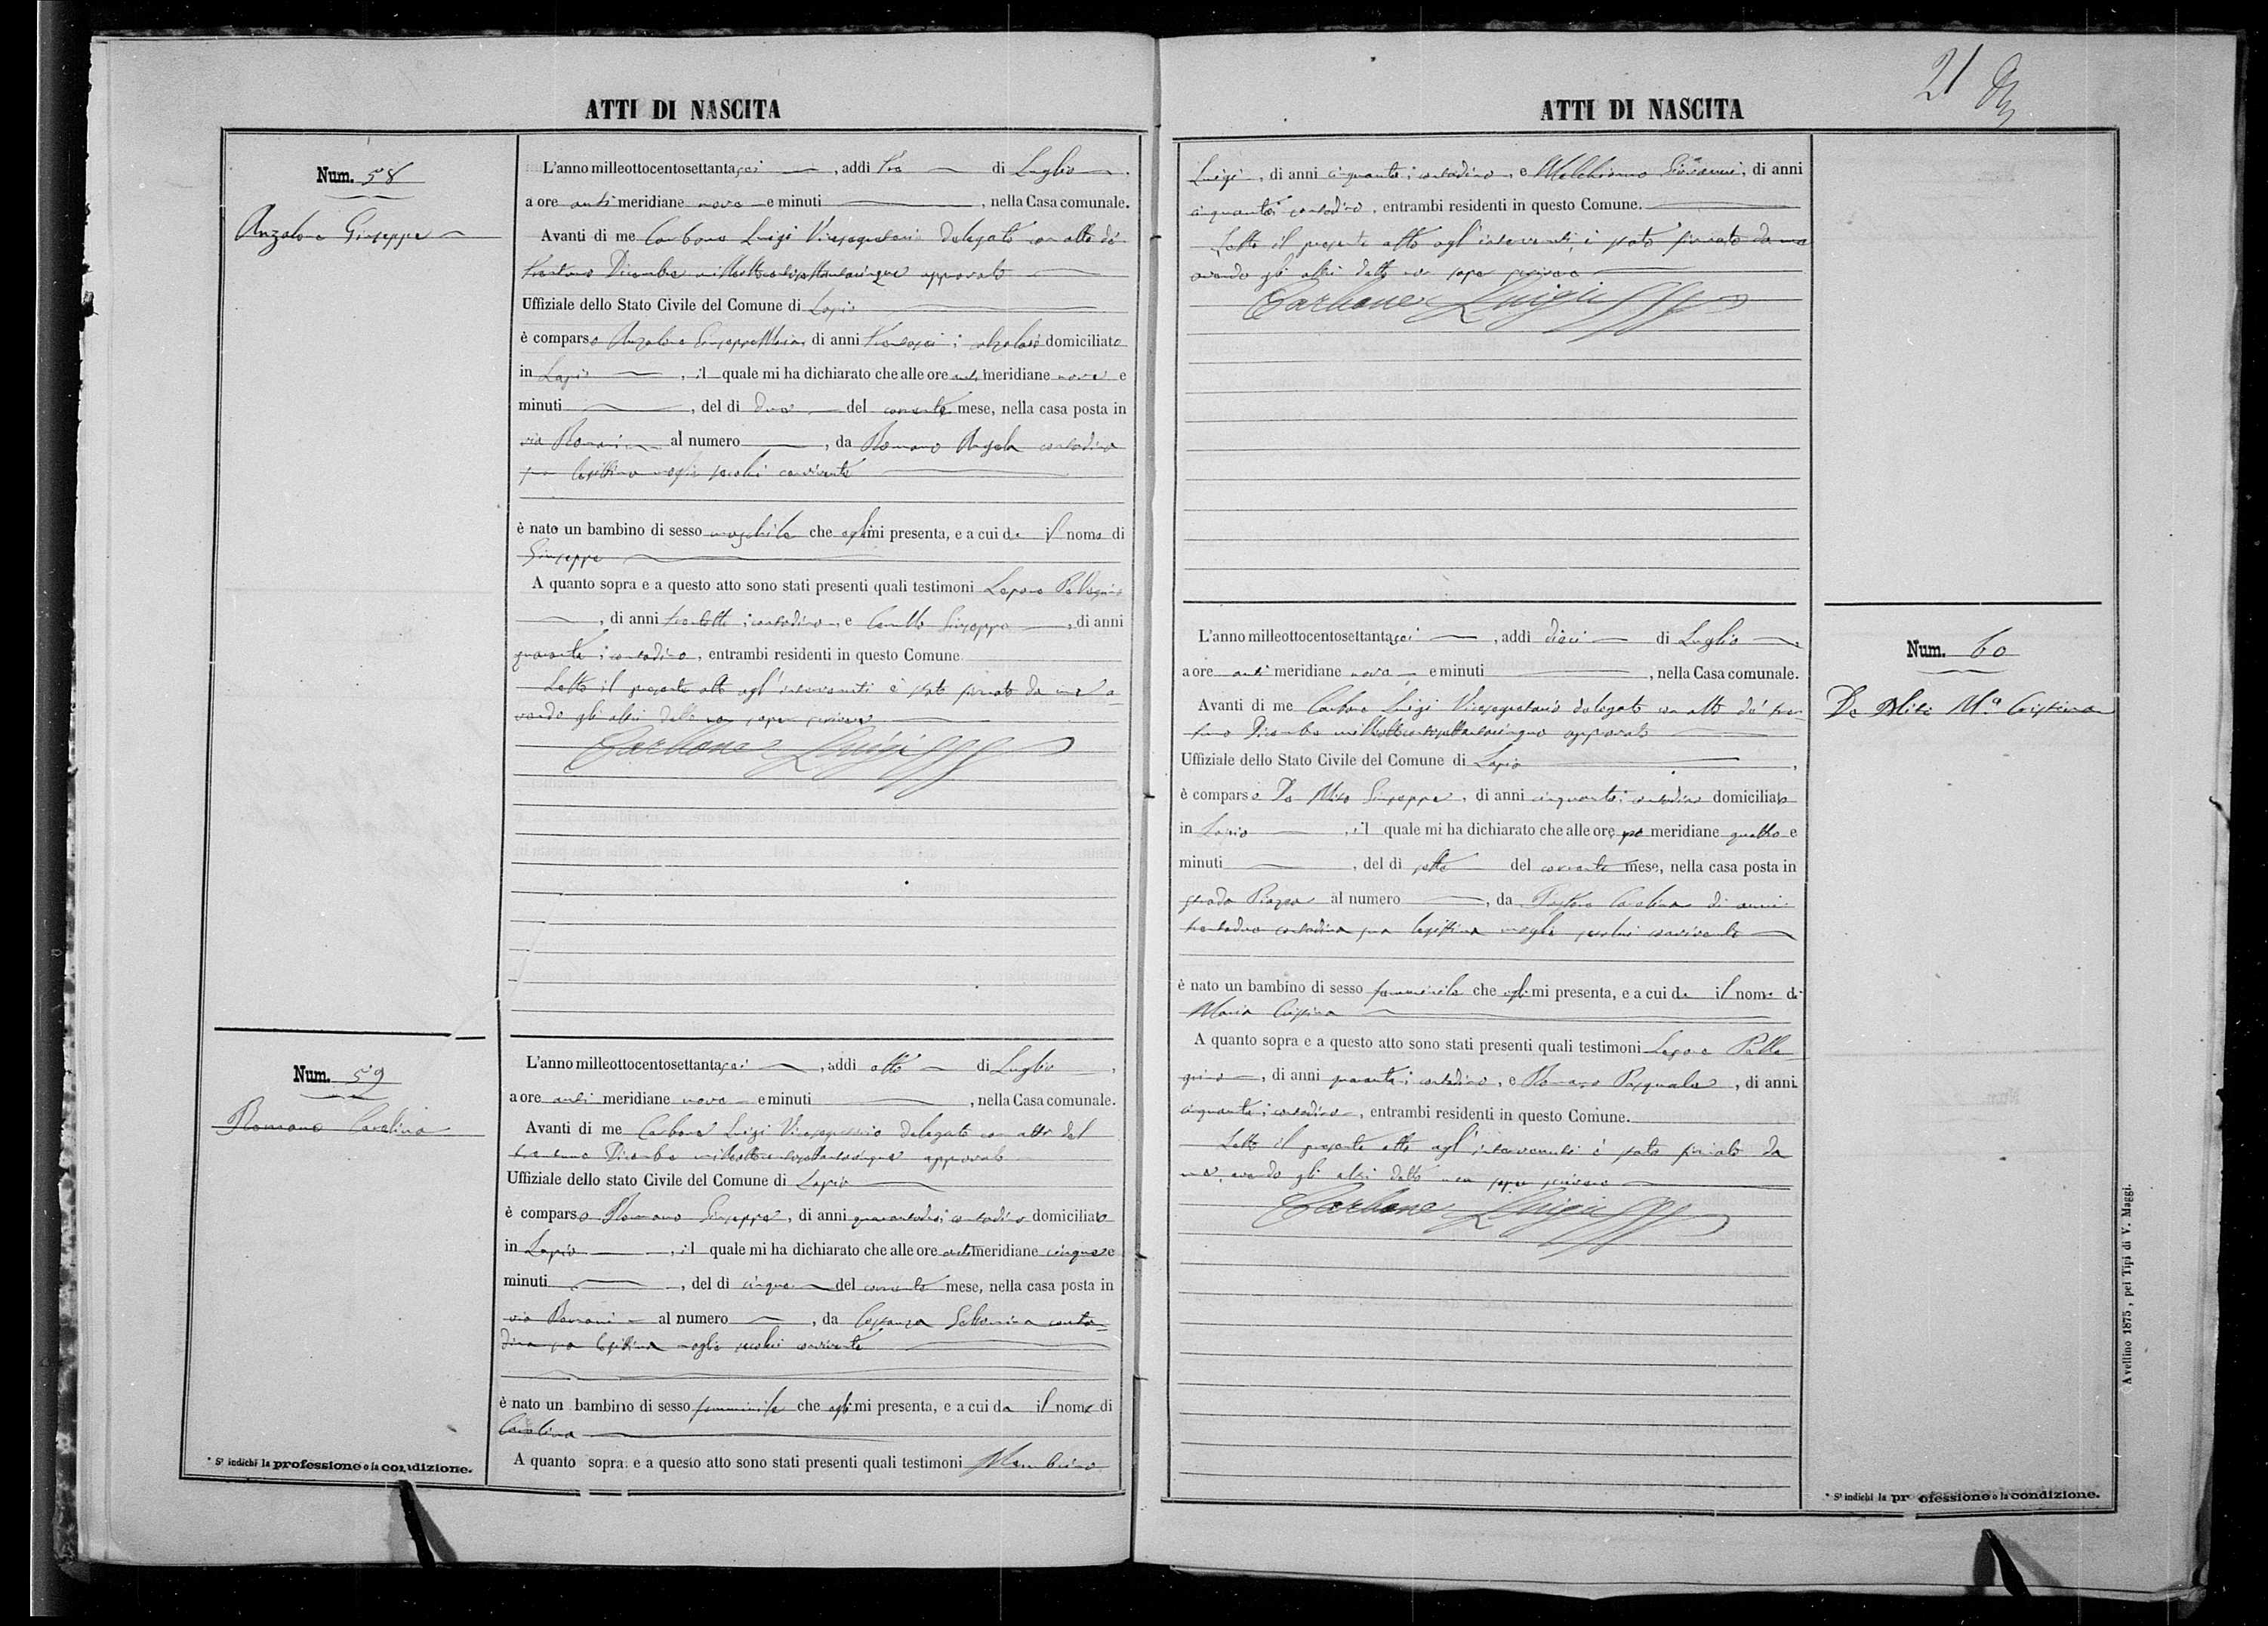 ATTI DI NASCITA
Num. 58
Anzalone Giuseppe
L'anno milleottocentosettantasei, addì tre di Luglio,
a ore anti meridiane nove e minuti, nella Casa comunale.
Avanti di me Carbone Luigi Vicesegretario delegato con atto de'
trentuno Dicembre milleottocentosettantacinque approvato
Uffiziale dello Stato Civile del Comune di Lapio
è comparso Anzalone Giuseppe Maria, di anni trentasei; calzolaio domiciliato
in Lapio, il quale mi ha dichiarato che alle ore anti meridiane nove e
minuti, del dì due del corrente mese, nella casa posta in
via Romani al numero, da Romano Angela contadina
sua legittima moglie secolui convivente
è nato un bambino di sesso maschile che egli mi presenta, e a cui da il nome di
Giuseppe
A quanto sopra e a questo atto sono stati presenti quali testimoni Lepore Pellegrino
, di anni trentotto; contadino, e Carullo Giuseppe, di anni
quaranta; contadino, entrambi residenti in questo Comune.
Letto il presente atto agl'intervenuti è stato firmato da me a-
vendo gli altri detto non saper scrivere
Carbone Luigi
Num. 59
Romano Carolina
L'anno milleottocentosettantasei, addì otto di Luglio,
a ore anti meridiane nove e minuti, nella Casa comunale.
Avanti di me Carbone Luigi Vicesegretario delegato con atto del
trentuno Dicembre milleottocentosettantacinque approvato
Uffiziale dello stato Civile del Comune di Lapio
è comparso Romano Giuseppe, di anni quarantadue; contadino domiciliato
in Lapio, il quale mi ha dichiarato che alle ore anti meridiane cinque e
minuti, del dì cinque del corrente mese, nella casa posta in
via Romani al numero, da Costanza contadina
dina sua legittima moglie secolui convivente
è nato un bambino di sesso femminile che egli mi presenta, e a cui da il nome di
Carolina
A quanto sopra e a questo atto sono stati presenti quali testimoni Membrino
* Si indichi la professione o la condizione.
21
ATTI DI NASCITA
Luigi, di anni cinquanta; contadino, e Melchionno Giovanni, di anni
cinquanta; contadino, entrambi residenti in questo Comune.
Letto il presente atto agl'intervenuti, è stato firmato da me
avendo gli altri detto non saper scrivere
Carbone Luigi
Num. 60
De Mise Ma Cristina
L'anno milleottocentosettantasei, addì dieci di Luglio,
a ore anti meridiane nove e minuti, nella Casa comunale.
Avanti di me Carbone Luigi Vicesegretario delegato con atto de' tren-
tuno Dicembre milleottocentosettantacinque approvato
Uffiziale dello Stato Civile del Comune di Lapio,
è comparso De Mise Giuseppe, di anni cinquanta; contadino domiciliato
in Lapio, il quale mi ha dichiarato che alle ore po meridiane quattro e
minuti, del dì sette del corrente mese, nella casa posta in
strada Piazza al numero, da Carolina di anni
trentadue contadina sua legittima moglie secolui convivente
è nato un bambino di sesso femminile che egli mi presenta, e a cui da il nome di
Maria Cristina
A quanto sopra e a questo atto sono stati presenti quali testimoni Lepore Pelle
grino, di anni quaranta; contadino, e Romano Pasquale, di anni
cinquanta; contadino, entrambi residenti in questo Comune.
Letto il presente atto agl'intervenuti è stato firmato da
me, avendo gli altri detto non saper scrivere
Carbone Luigi
* Si indichi la professione o la condizione.
Avellino 1875, pei Tipi di V. Maggi.